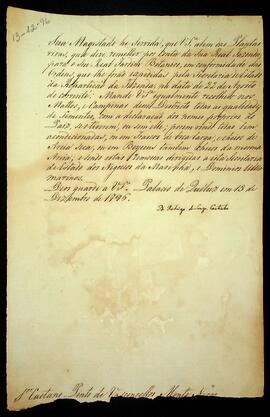 13-12-96
Sua Magestade he servida, que V.S. alem das Plantas
vivas, que deve remetter por conta da Sua Real Fazenda,
para o Seu Real Jardim Botanico, em conformidade das
Ordens, que lhe forão expedidas pela Secretaria de Estado
da Repartição da Fazenda na data de 27 de Agosto
do corrente: Mande V.S. igualmente recolher nos
Mattos, e Campinas desse Districto todas as qualidades
de Sementes, com a declaração dos nomes proprios do
Paiz, se os tiverem, ou sem elles; porem venhão todas bem
acondicionadas, ou em Sacos de boca larga, e cheios de
Areia Seca, ou em Boyoens tambem cheios da mesma
Areia; e sendo estas Remessas dirigidas a esta Secretaria
de Estado dos Negocios da Marinha, e Dominios Ultra-
marinos.
Deos guarde a V.S. Palacio de Queluz em 13 de
Dezembro de 1796.
D. Rodrigo de Souza Coutinho
Snr. Caetano Pinto de Vasconcellos Monte Negro